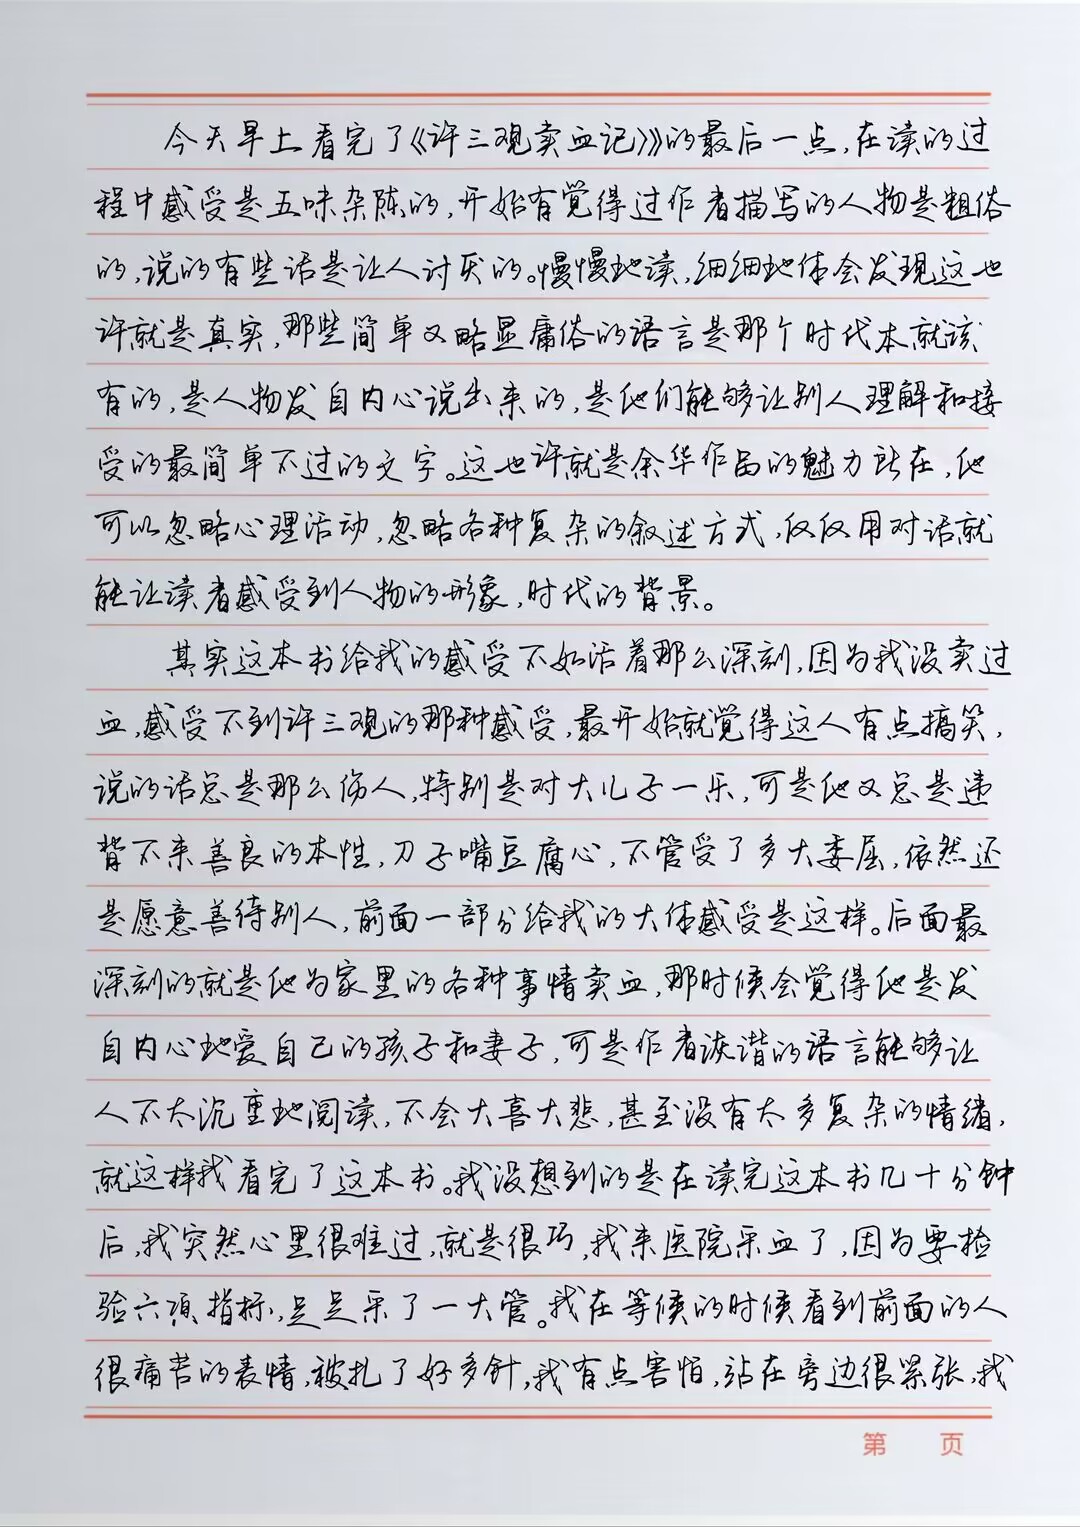 今天早上看完了《许三观卖血记》的最后一点,在读的过
程中感受是五味杂陈的,开始有觉得过作者描写的人物是粗俗
的,说的有些话是让人讨厌的。慢慢地读,细细地体会发现这也
许就是真实,那些简单又略显庸俗的语言是那个时代本就该
有的,是人物发自内心说出来的,是他们能够让别人理解和接
受的最简单不过的文字。这也许就是余华作品的魅力所在,他
可以忽略心理活动,忽略各种复杂的叙述方式,仅仅用对话就
能让读者感受到人物的形象,时代的背景。
其实这本书给我的感受不如活着那么深刻,因为我没卖过
血,感受不到许三观的那种感受,最开始就觉得这人有点搞笑,
说的话总是那么伤人,特别是对大儿子一乐,可是他又总是违
背不来善良的本性,刀子嘴豆腐心,不管受了多大委屈,依然还
是愿意善待别人,前面一部分给我的大体感受是这样。后面最
深刻的就是他为家里的各种事情卖血,那时候会觉得他是发
自内心地爱自己的孩子和妻子,可是作者诙谐的语言能够让
人不太沉重地阅读,不会大喜大悲,甚至没有太多复杂的情绪,
就这样我看完了这本书。我没想到的是在读完这本书几十分钟
后,我突然心里很难过,就是很巧,我来医院采血了,因为要检
验六项指标,足足采了一大管。我在等候的时候看到前面的人
很痛苦的表情,被扎了好多针,我有点害怕,站在旁边很紧张,我
第 页